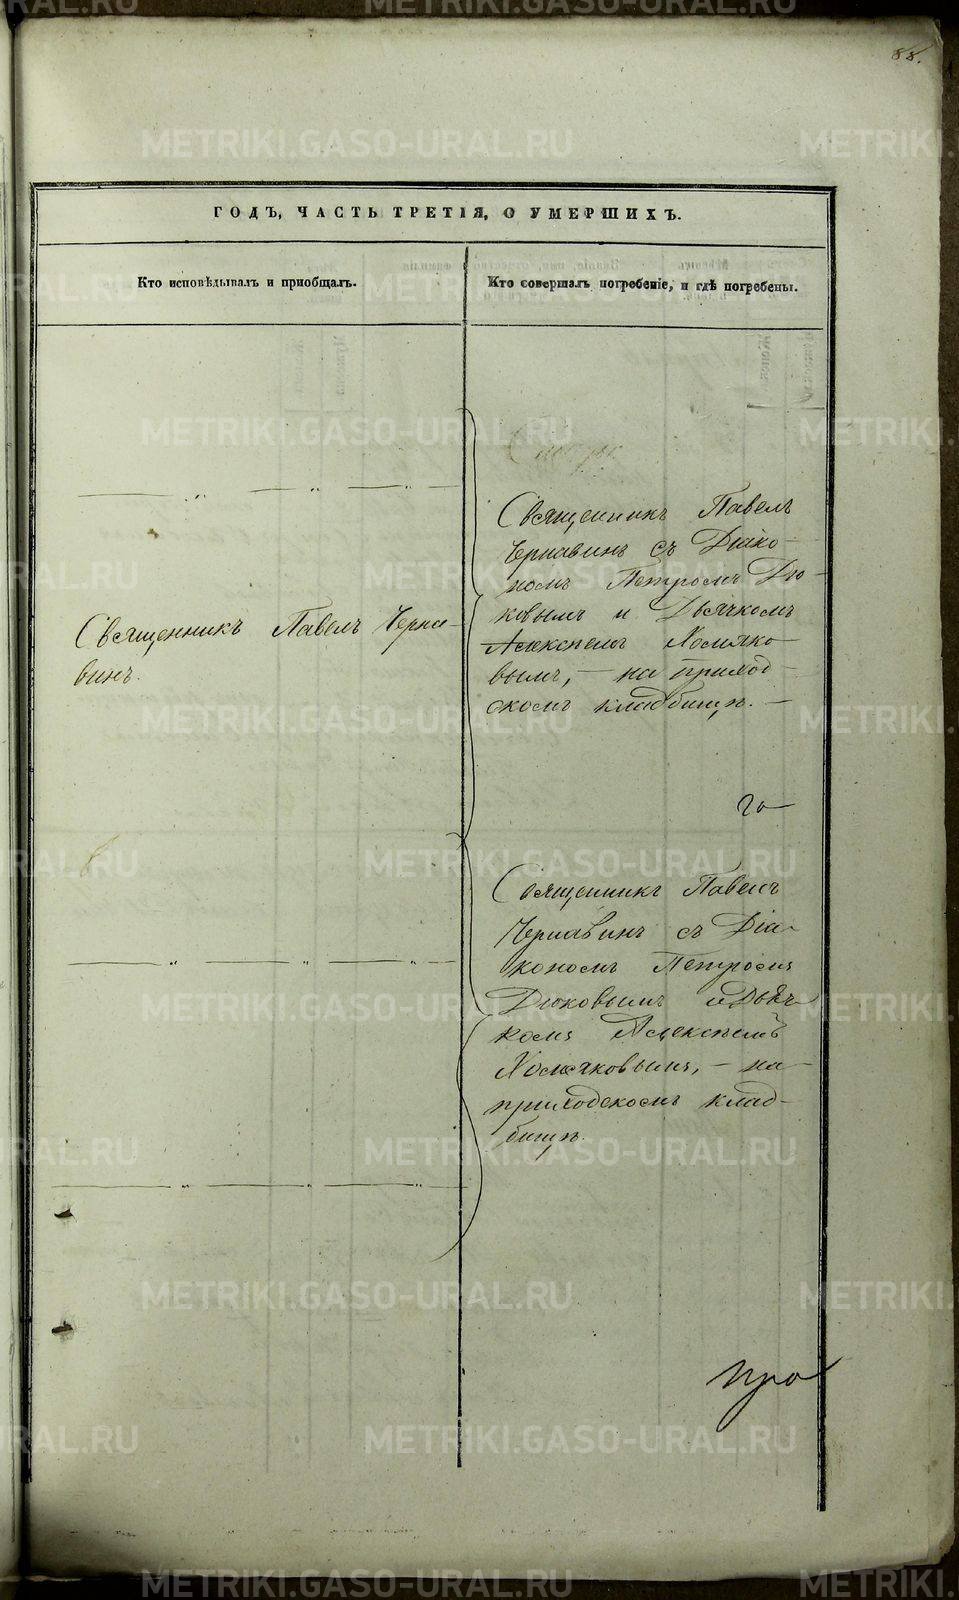 88.
ГОДЪ, ЧАСТЬ ТРЕТІЯ, О УМЕРШИХЪ.
Кто исповѣдывалъ и пріобщалъ.
Кто совершалъ погребеніе, и гдѣ погребены.
Священникъ Павелъ Черна-
винъ.
Священникъ Павелъ
Чернавинъ съ Діако-
номъ Петромъ Дю-
ковымъ и Дьячкомъ
Алексѣемъ Хомяко-
вымъ, – на приход-
скомъ кладбищѣ. –
Священникъ Павелъ
Чернавинъ съ Діа-
кономъ Петромъ
Дюковымъ и Дьяч-
комъ Алексѣемъ
Хомяковымъ, – на
приходскомъ клад-
бищѣ.
METRIKI.GASO-URAL.RU